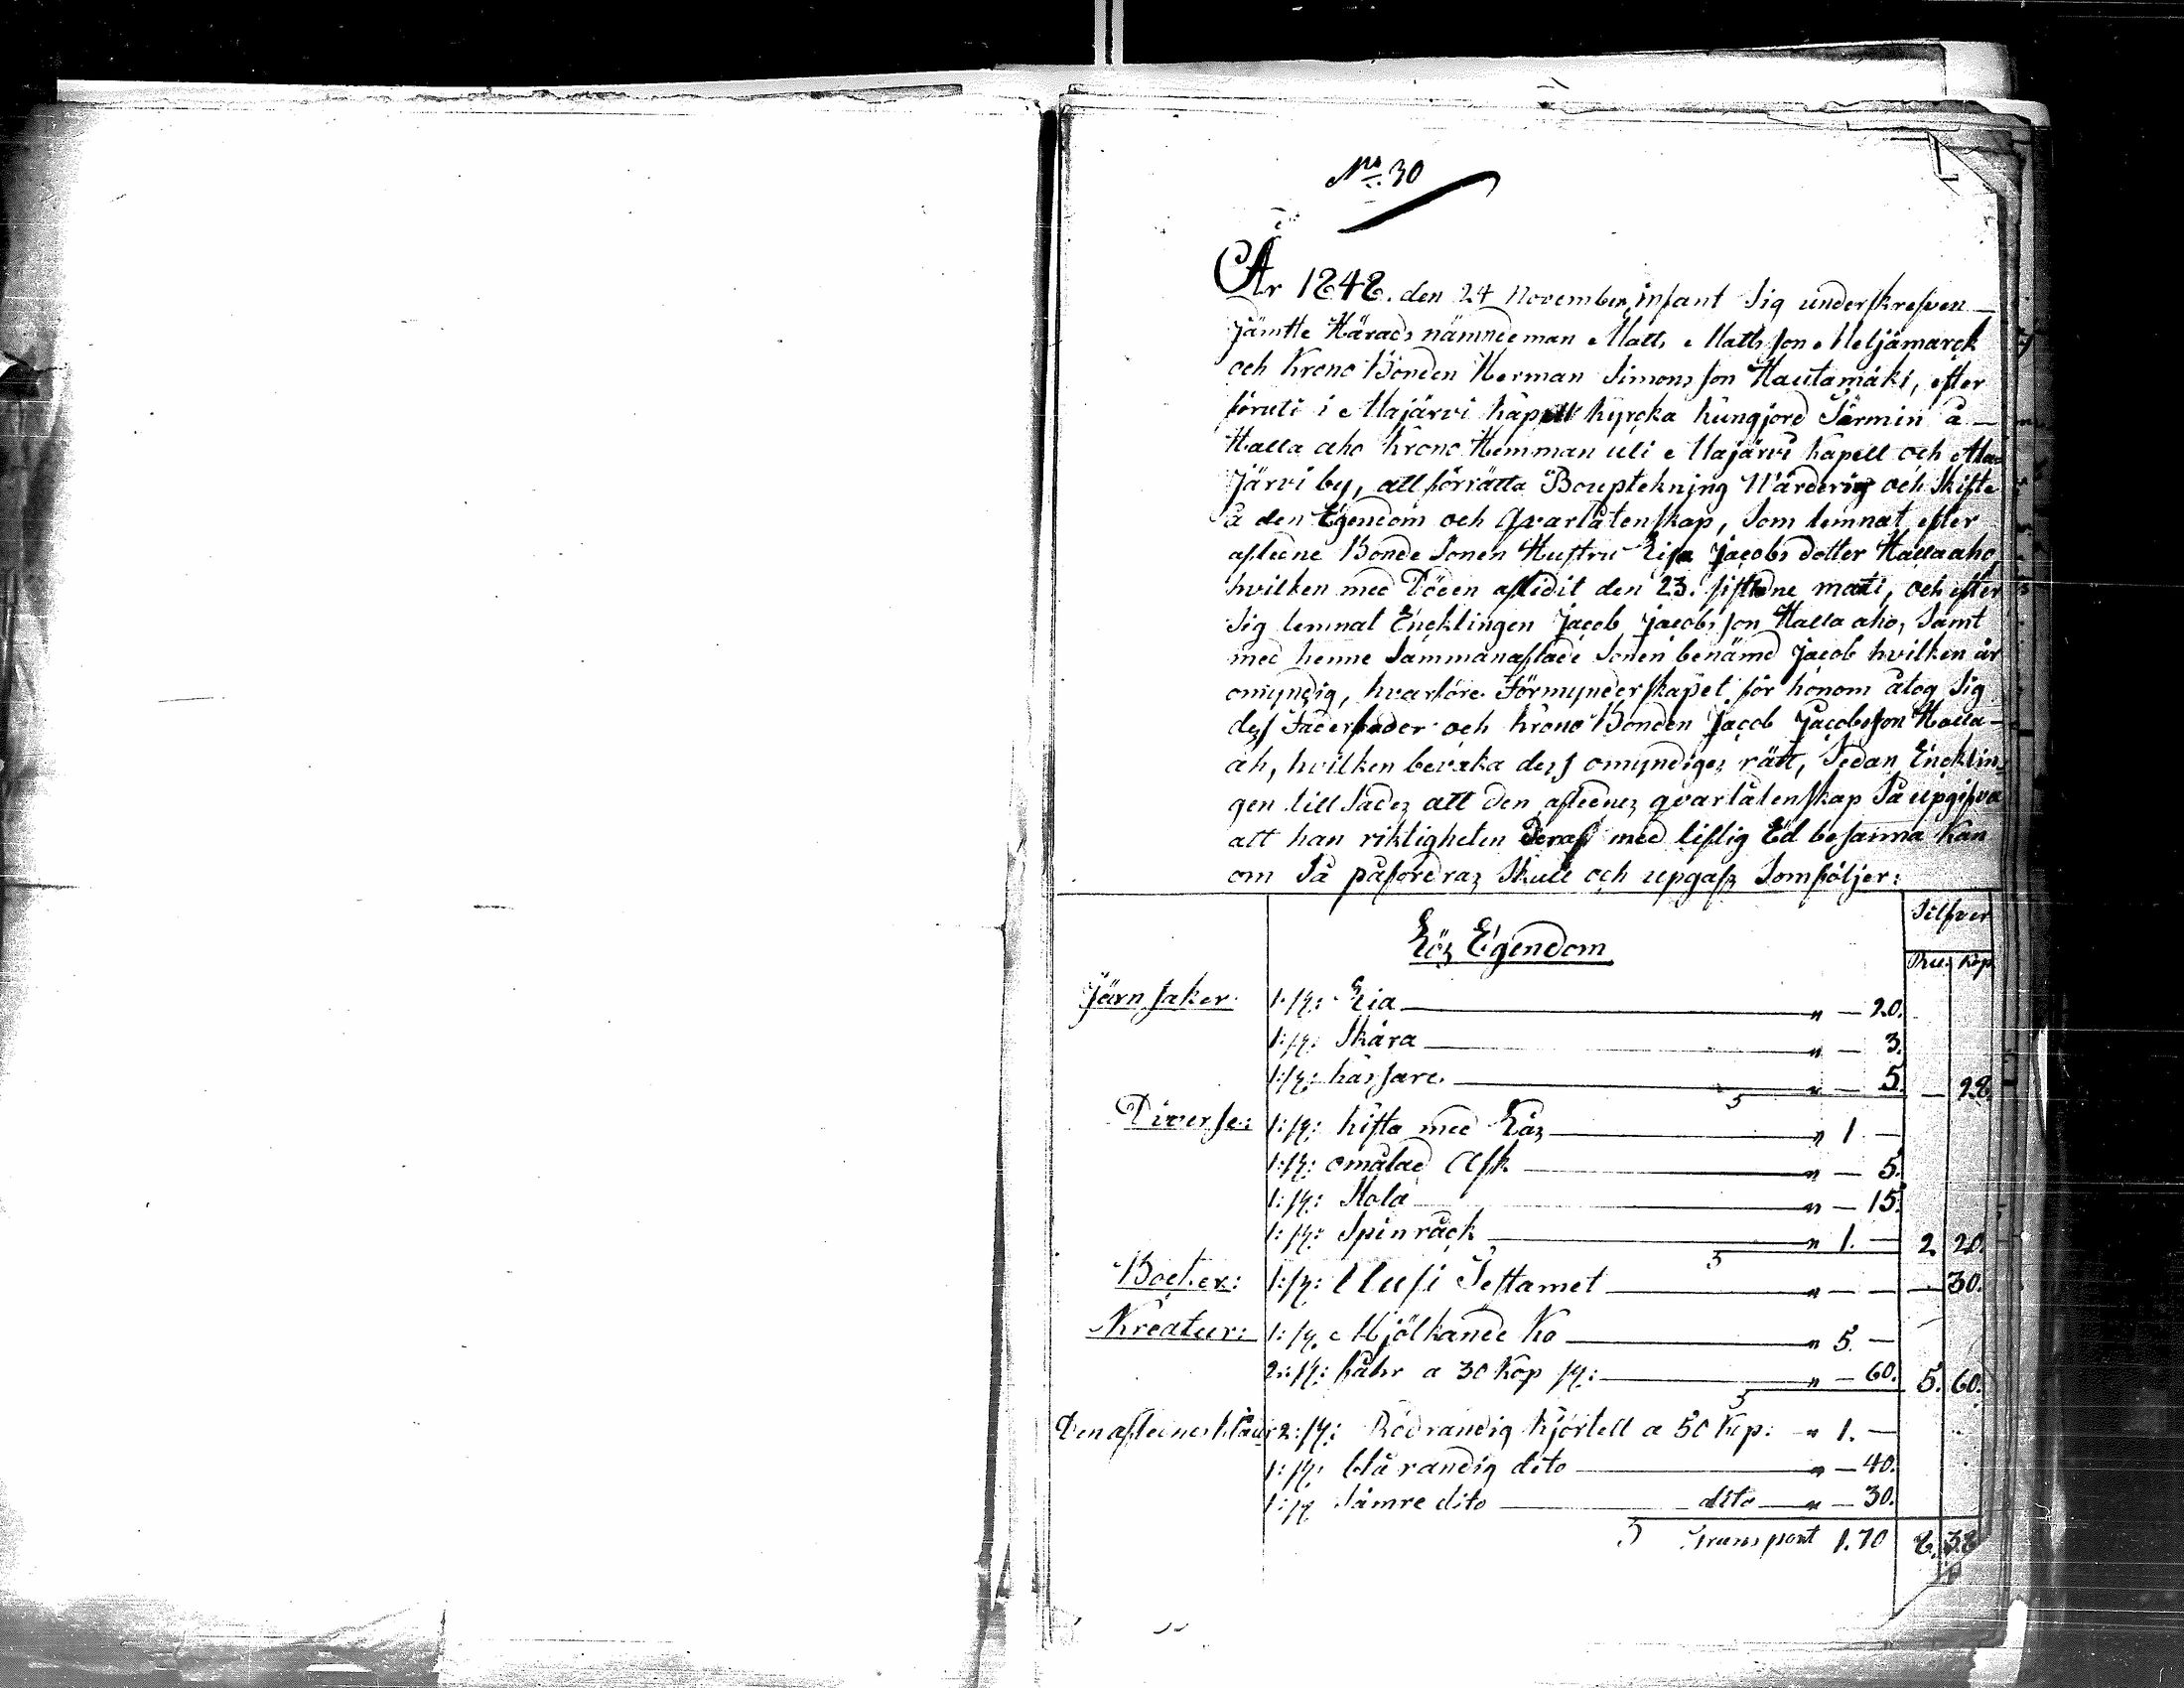 No 30
År 1848. den 24 November, infant Sig underskrefven
jämtte Härads nämndeman Matts Mattsson Meljämarck
och Krono Bonden Herman Simonsson Hautamäki, efter
föruti i Alajärvi kapell kyrcka kungjord Tärmin å
Halla aho Krono Hemman uti Alajärvi kapell och Ala
Järvi by, att förrätta Bouptekning Värdering och Skifte
å den Egendom och Qvarlåtenskap, Som lemnat efter
afledne Bonde Sonen Hustru Lisa Jacobs dotter Hallaaho,
hvilken med Döden aflidit den 23. sistledne maii, och efter
Sig lemnat Encklingen Jacob Jacobsson Halla aho, Samt
med henne Sammanaflade Sonen benämd Jacob hvilken är
omyndig, hvarföre Förmynderskapet för honom åtog Sig
dess Faderfader och Krono Bonden Jacob Jacobsson Halla-
ah, hvilken bevaka dess omyndiges rätt, Sedan Encklin
gen till Sades att den aflednes qvarlåtenskap Så upgifva
att han riktigheten deraf med liflig Ed besanna kan
om Så påfordras Skull och upgafs Somföljer:
Silfver
Lös Egendom
Ru. Kop
Järnsaker. 1: st: Lia " — 20.
1: st: Skära " — 3.
1: st: kassare. " — 5. — 28.
Diverse: 1: st: kista med Lås " 1. —
1: st: omålad Ask " — 5.
1: st: Stola " — 15.
1: st: Spinråck " 1. — 2. 20.
Böcker: 1: st: Uusi Testamet " — — — 30.
Kreatur: 1: st. Mjölkande Ko " 5. —
2: st: fåhr a 30 kop st: " — 60. 5. 60.
Den aflednes kläder 2: st: Rödrandig kjortell a 50 kop: " 1. —
1: st: blå randig dito " — 40.
1: st Sämre dito dito " — 30.
Transport 1.70 8. 38